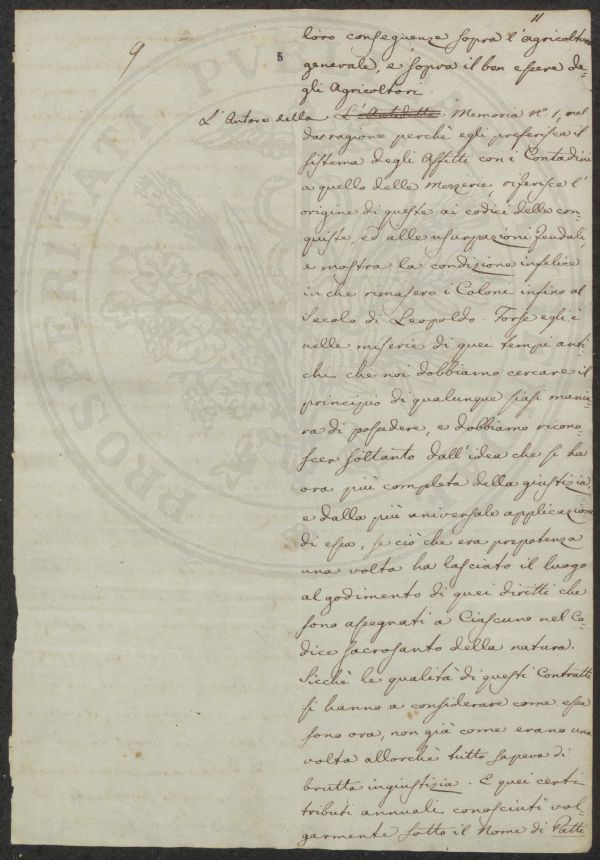 11
9
5
loro conseguenze sopra l'agricoltura
generale, e sopra il ben essere de-
gli Agricoltori.
L'Autore della Memoria N.º 1, nel
dar ragione perchè egli preferisca il
sistema degli Affitti con i Contadini
a quello delle Mezzerie, riferisce l'
origine di queste ai codici delle con-
quiste, ed alle usurpazioni feudali,
e mostra la condizione infelice
in che rimasero i Coloni infino al
Secolo di Leopoldo. Forse egli è
nelle miserie di quei tempi anti
chi che noi dobbiamo cercare il
principio di qualunque siasi manie-
ra di possedere, e dobbiamo ricono-
scer soltanto dall'idea che si ha
ora più completa della giustizia,
e dalla più universale applicazione
di essa, se ciò che era prepotenza
una volta ha lasciato il luogo
al godimento di quei diritti che
sono assegnati a Ciascuno nel Co-
dice sacrosanto della natura.
Sicchè le qualità di questi Contratti
si hanno a considerare come esse
sono ora, non già come erano una
volta allorchè tutto sapeva di
brutta ingiustizia. E quei certi
tributi annuali conosciuti vol-
garmente sotto il Nome di Patti
PROSPERITATI PVBLICAE